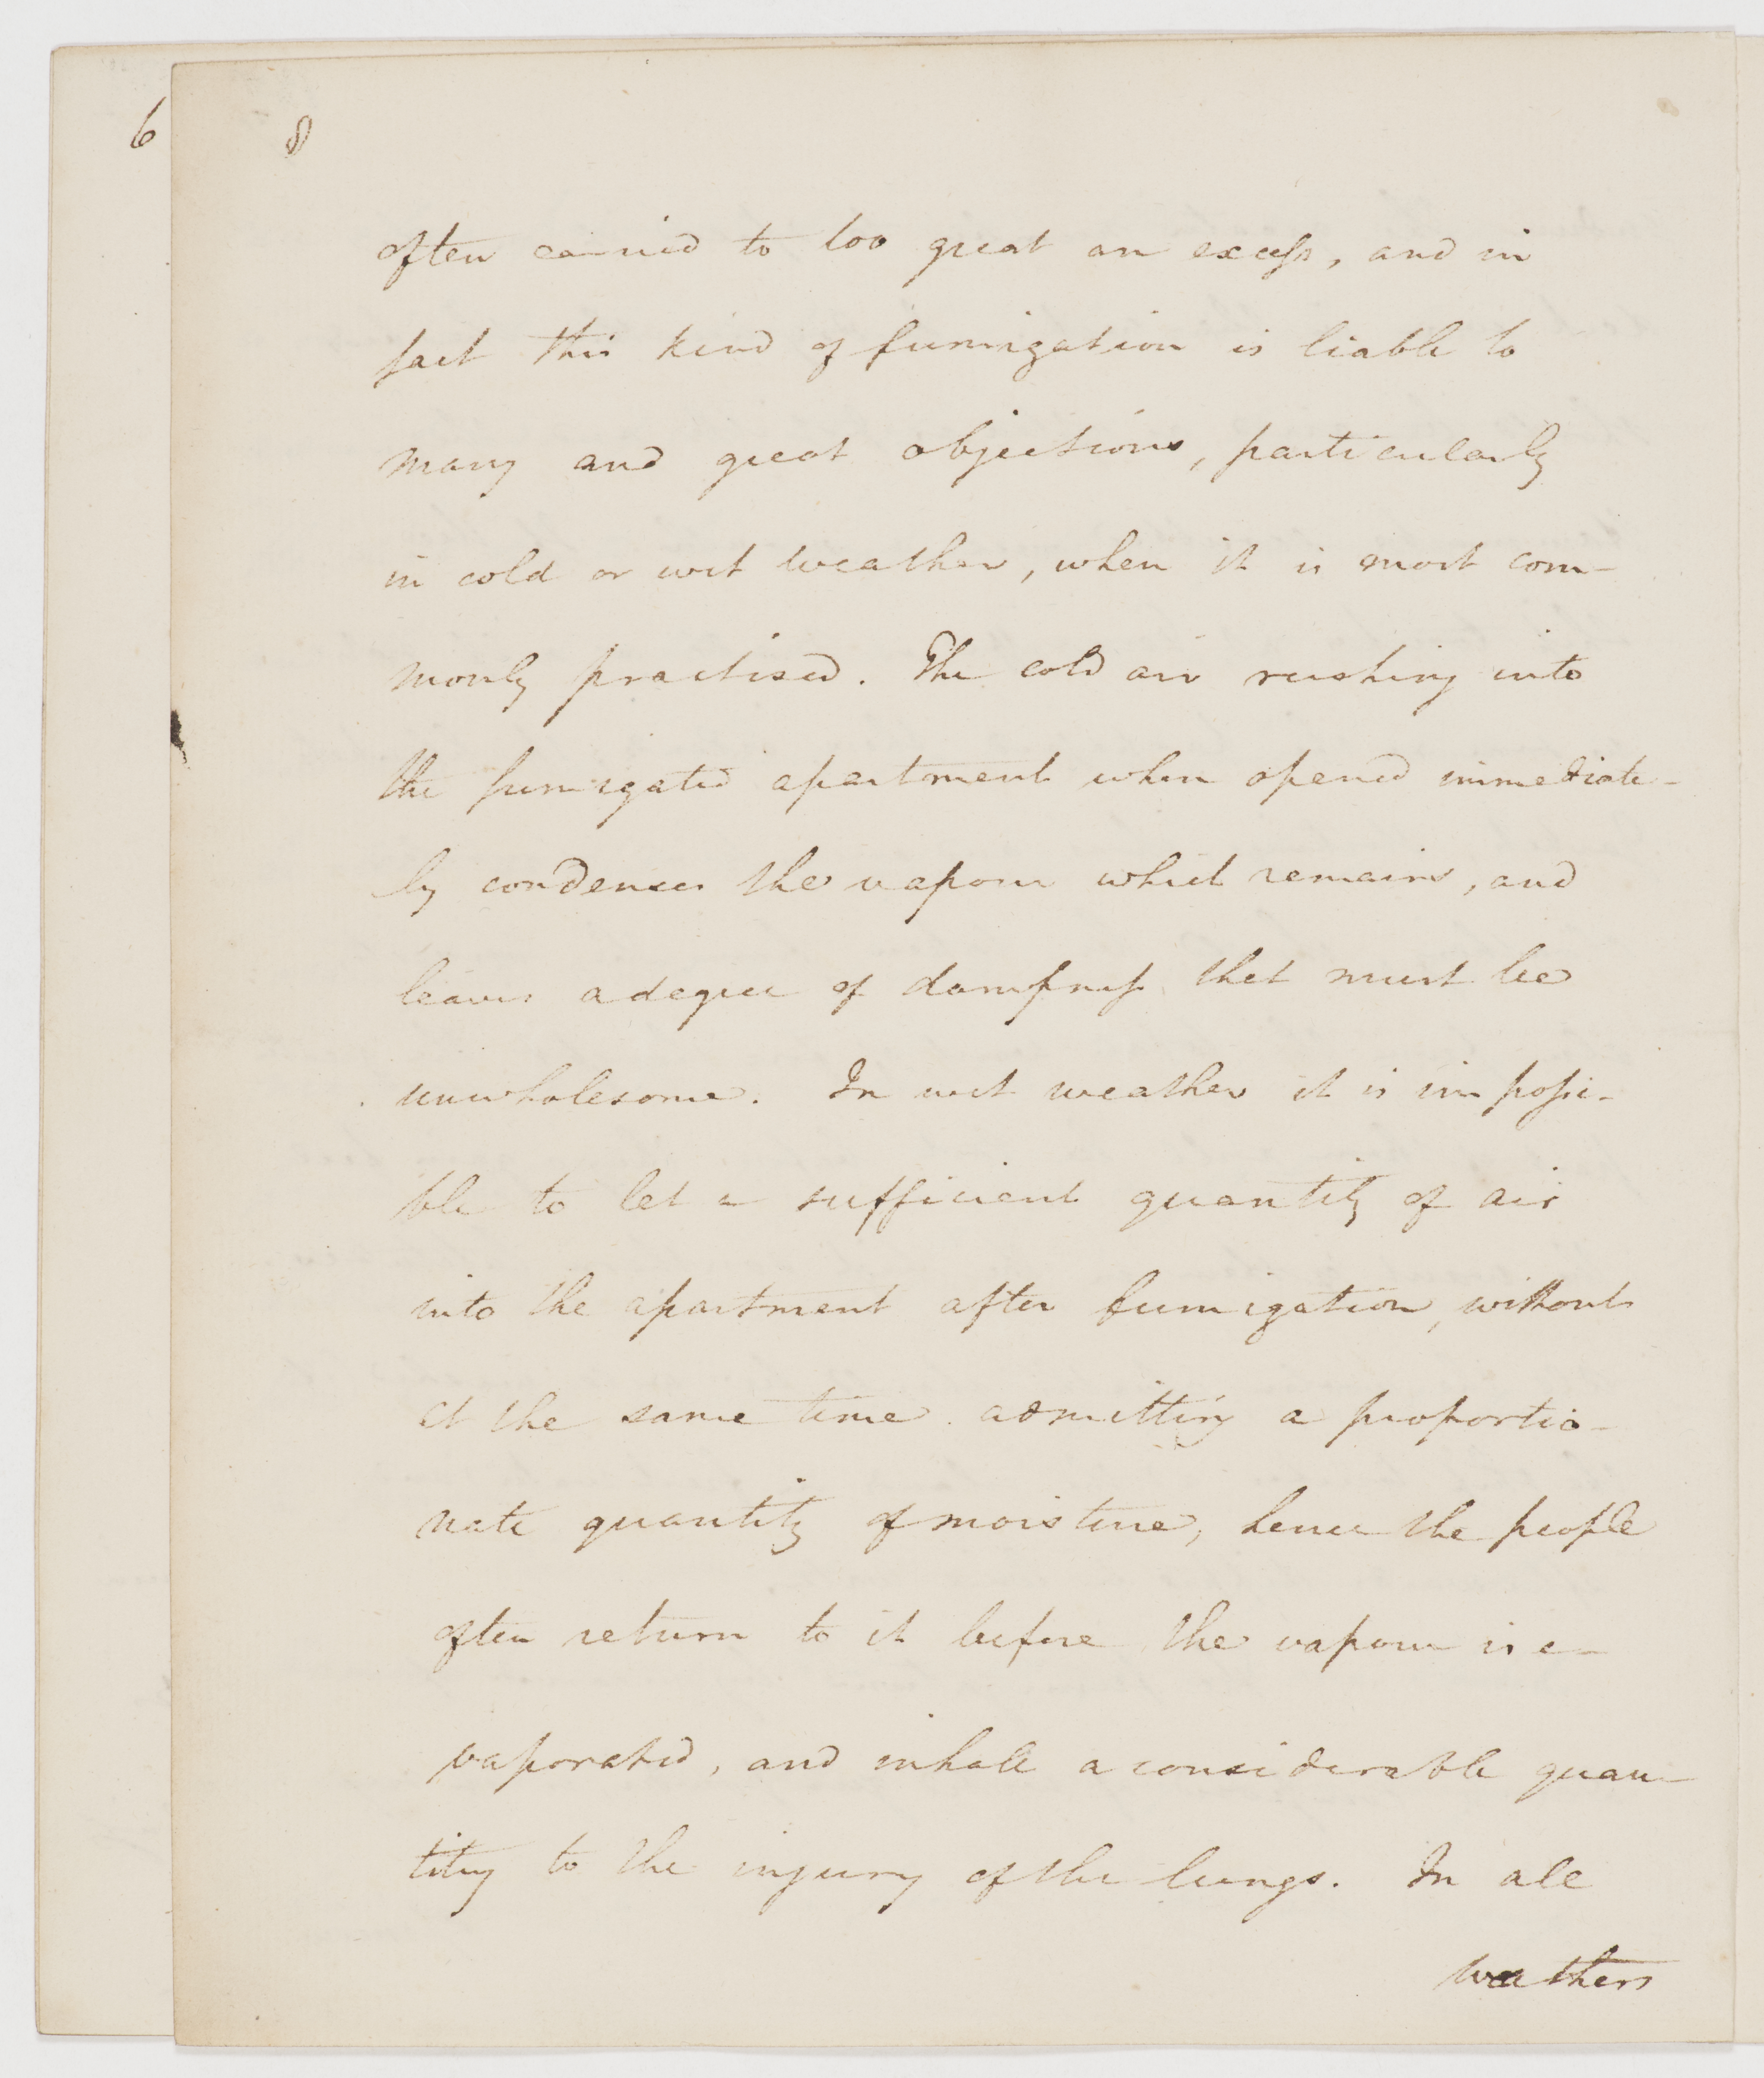 6
8
often carried to too great an excess, and in
fact this kind of fumigation is liable to
many and great objections, particularly
in cold or wet weather, when it is most com-
monly practised. The cold air rushing into
the fumigated apartment when opened immediate-
ly condenses the vapour which remains, and
leaves a degree of dampness that must be
unwholesome. In wet weather it is impossi-
ble to let a sufficient quantity of air
into the apartment after fumigation, without
at the same time admitting a proportio-
nate quantity of moisture, hence the people
often return to it before the vapour is e-
vaporated, and inhale a considerable quan-
tity to the injury of the lungs. In all
weathers